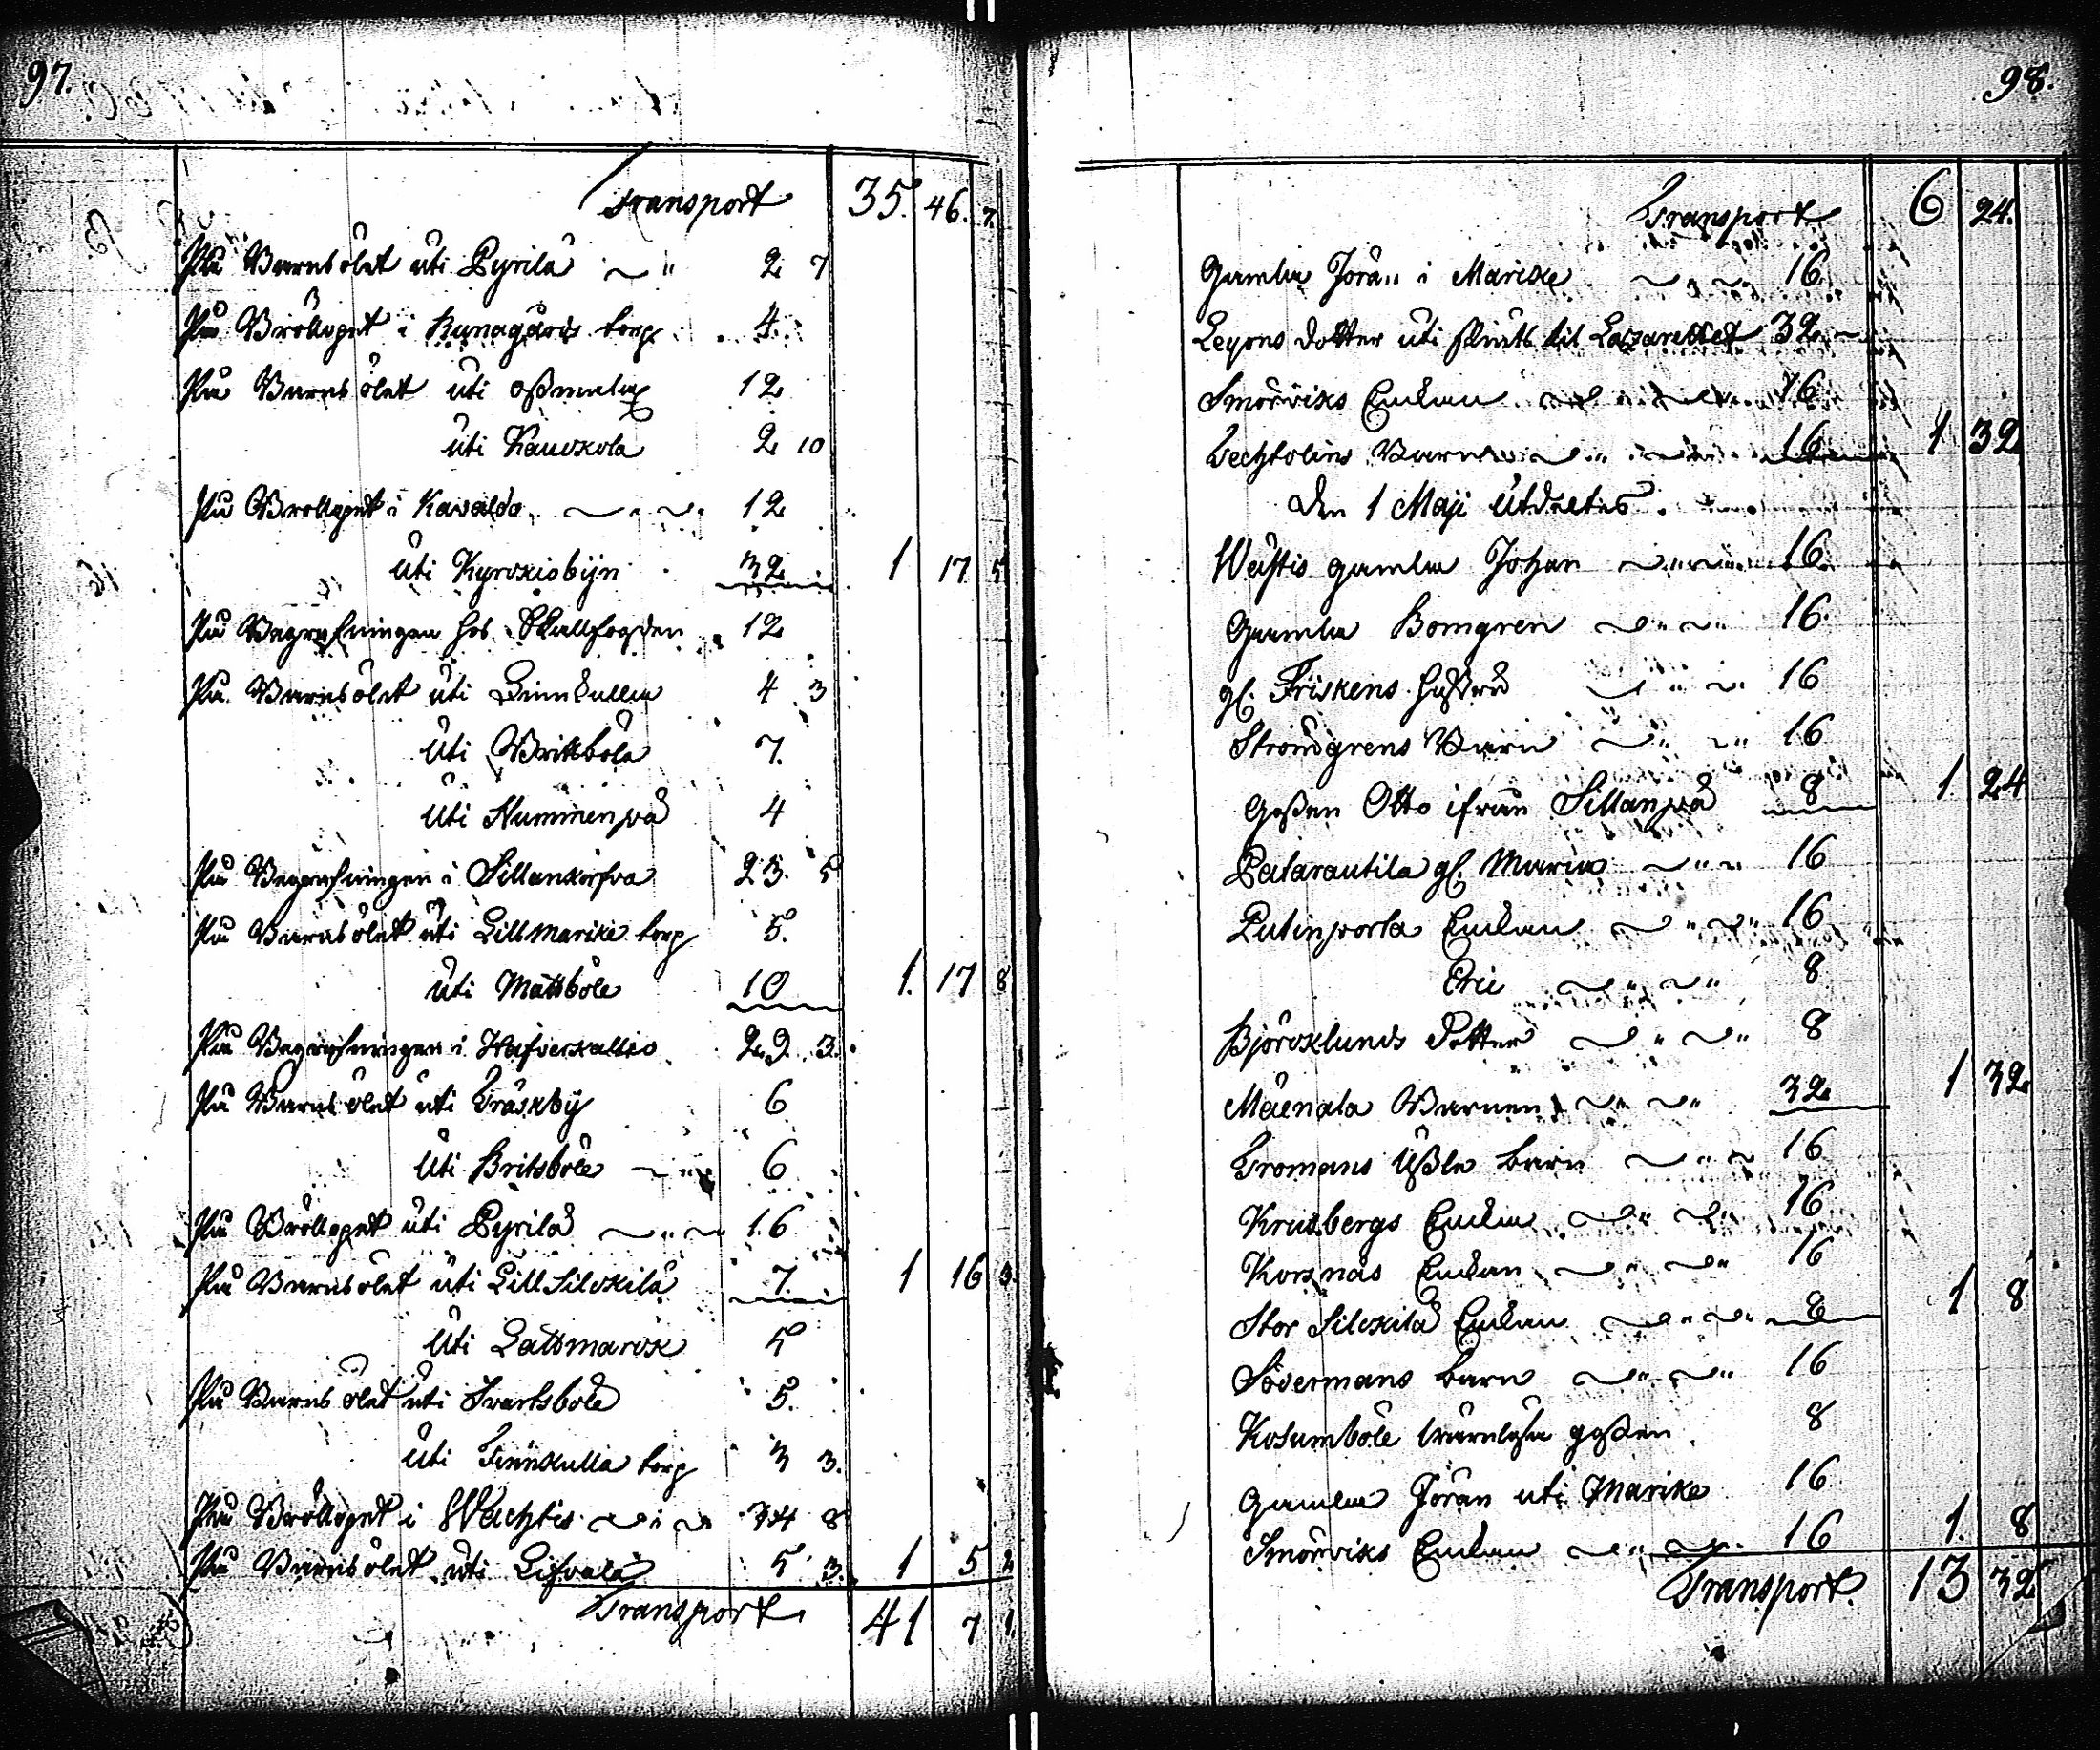 97.
Transport 35. 46. 7.
På Barnsölet uti Pyrilä 2 7
På Bröllopet i Kunagårds torp 4.
På Barnsölet uti Oßmala 12
uti Kauskola 2 10
På Bröllopet i Kavaldo 12
uti Kyrckiobÿn 32 1 17 5
På Begrafningen hos Skallfogden 12
På Barnsölet uti Finnkulla 4 3
uti Brittböle 7.
uti Nummenpä 4
På Begrafningen i Sillankorfva 23. 5
På Barnsölet uti Lillmarike torp 5.
uti Mattsböle 10 1. 17 8
På Begrafningen i Hafverkallio 29 3.
På Barnsölet uti Träskbÿ 6
uti Britsböle 6
På Bröllopet uti Pyrilä 16
På Barnsölet uti Lill Silckilä 7. 1 16 3.
uti Lattsmarck 5
På Barnsölet uti Svartsböle 5.
uti Finnkulla torp 3 3.
På Bröllopet i Wächtis 34 8
På Barnsölet uti Lifvala 5 3. 1 5 2
Transport 41 7 1.
98.
Transport 6 24.
Gamla Jöran i Marike 16
Leyons dotter uti til Lazarettet 32
Smörviks Enkan 16
Bechtolins Barn 16 1 32
den 1 Maji Utdeltes
Wästis gamla Johan 16
Gamla Bomgren 16.
gl. Friskens hustru 16
Strömgrens Barn 16
Goßen Otto ifrån Sillanpä 8 1. 24
Patarautila gl. Maria 16
Putinporla Enkan 16
Eric 8
Björcklunds Dotter 8
Mäenala Barnen 32 1 32
Gromans Usla barn 16
Krusbergs Enka 16
Korsnäs Enkan 16
Stor Silckilä Enkan 8 1 8
Södermans barn 16
Kosumböle vårnlösa goßen 8
Gamla Jöran uti Marike 16
Smörviks Enkan 16 1. 8
Transport. 13 32